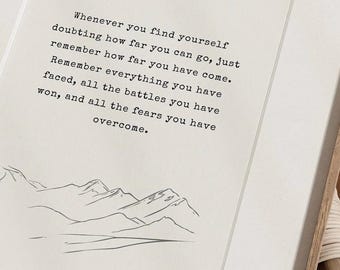 Whenever you find yourself
doubting how far you can go, just
remember how far you have come.
Remember everything you have
faced, all the battles you have
won, and all the fears you have
overcome.